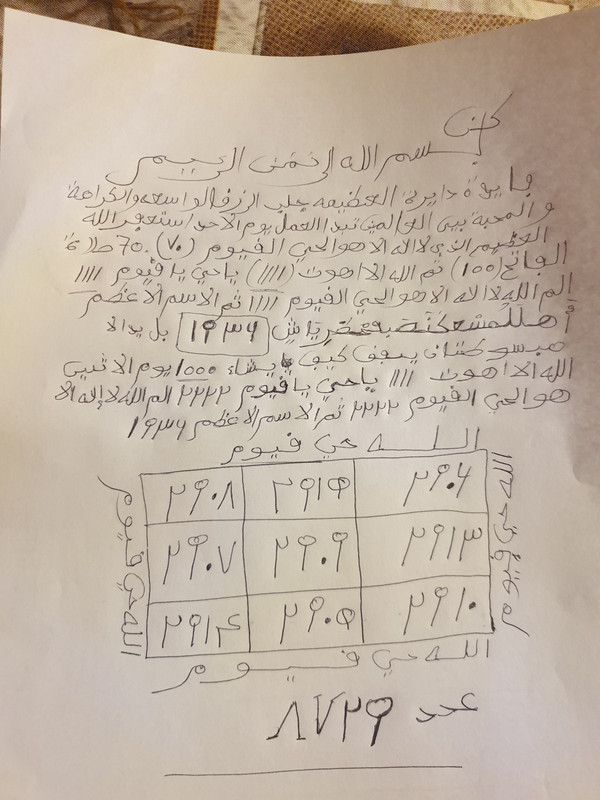 بسم الله الرحمن الرحيم
دايرة العظيمه جلب الرزق الواسعه والكرامة
والمحبة بين العالمين تبدا العمل يوم الاحد استغفر الله
العظيم الذي لا اله الا هو الحي القيوم (٧٠) 70 صلاة
الفاتح (١٠٠) ثم الله الا اهوت (١١١١) يا حي يا قيوم ١١١١
الم الله لا اله الا هو الحي القيوم ١١١١ ثم الاسم الاعظم
١٩٣٦ بل يداه
مبسوطتان ينفق كيف يشاء 1000 يوم الاثنين
الله الا اهوت ١١١١ يا حي يا قيوم ٢٢٢٢ الم الله لا إله الا
هو الحي القيوم ٢٢٢٢ ثم الاسم الاعظم ١٩٣٦
الله حي قيوم
٢٩٠٨ ٢٩١٥ ٢٩٠٦
٢٩٠٧ ٢٩٠٩ ٢٩١٣
٢٩١٤ ٢٩٠٥ ٢٩١٠
الله حي قيوم
الله حي قيوم
الله حي قيوم
عدد ٨٧٢٩